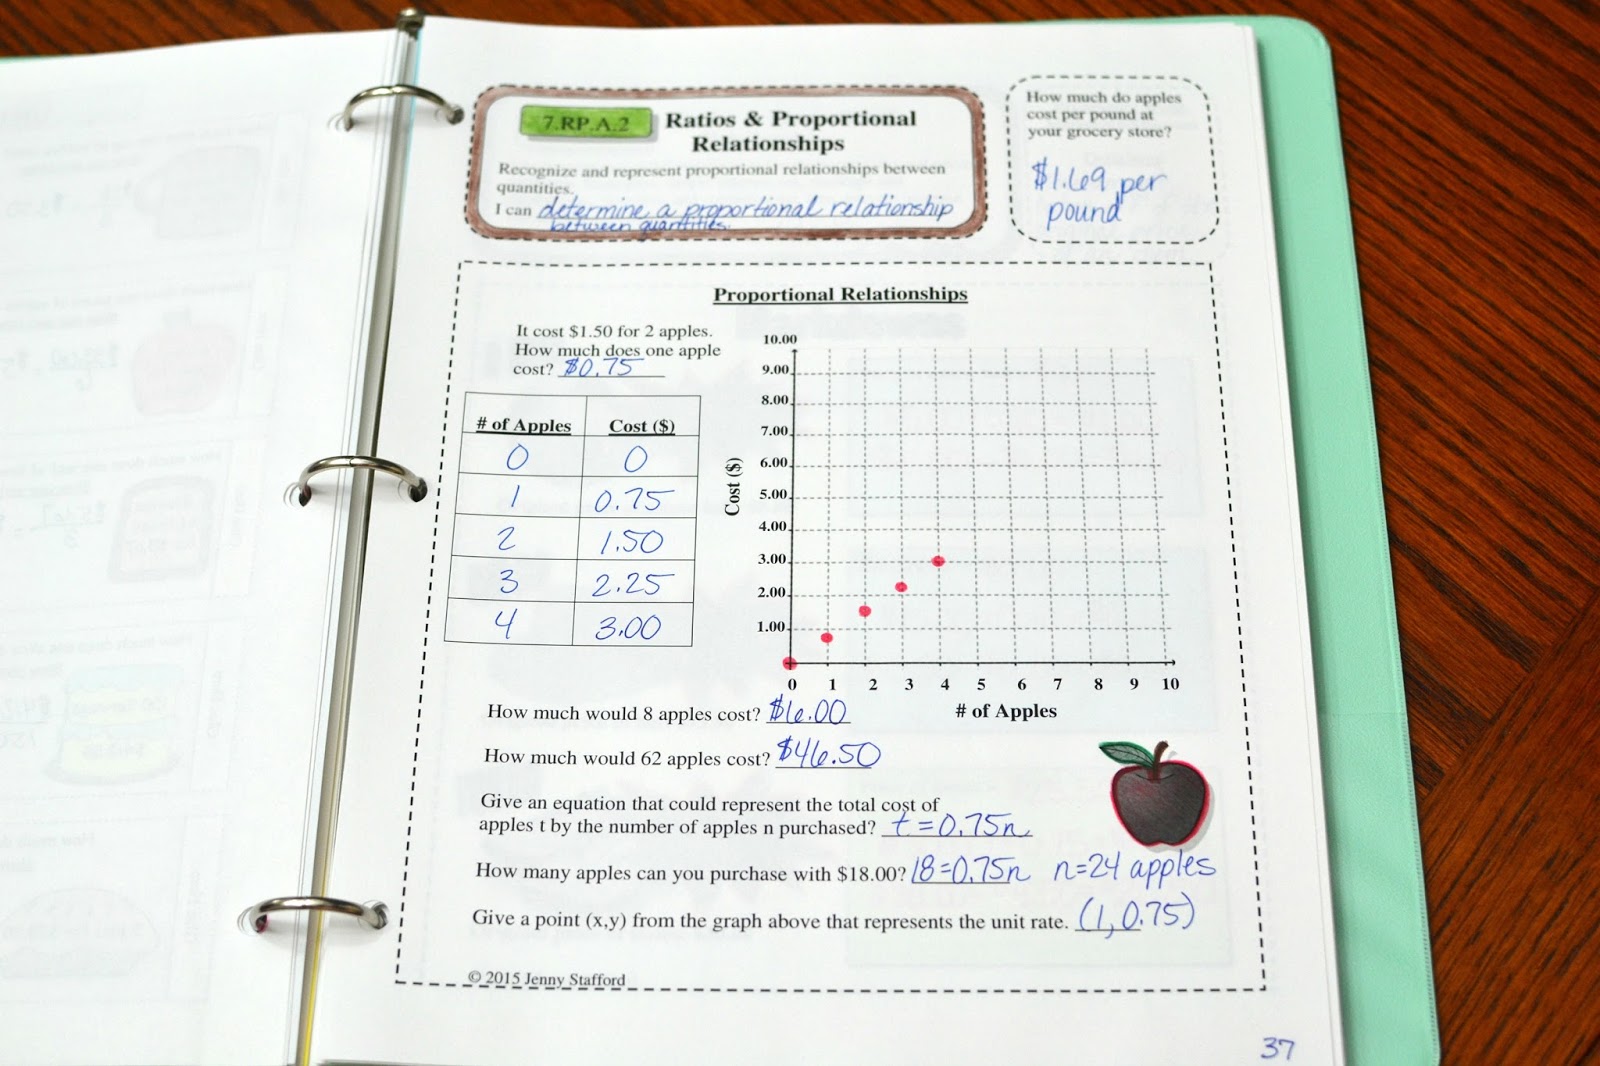 7.RP.A.2
Ratios & Proportional
Relationships
Recognize and represent proportional relationships between
quantities.
I can determine a proportional relationship
between quantities.
How much do apples
cost per pound at
your grocery store?
$1.69 per
pound
Proportional Relationships
It cost $1.50 for 2 apples.
How much does one apple
cost? $0.75
# of Apples Cost ($)
0 0
1 0.75
2 1.50
3 2.25
4 3.00
10.00
9.00
8.00
7.00
6.00
5.00
4.00
3.00
2.00
1.00
Cost ($)
0 1 2 3 4 5 6 7 8 9 10
# of Apples
How much would 8 apples cost? $6.00
How much would 62 apples cost? $46.50
Give an equation that could represent the total cost of
apples t by the number of apples n purchased? t=0.75n
How many apples can you purchase with $18.00? 18=0.75n n=24 apples
Give a point (x,y) from the graph above that represents the unit rate. (1, 0.75)
© 2015 Jenny Stafford
37